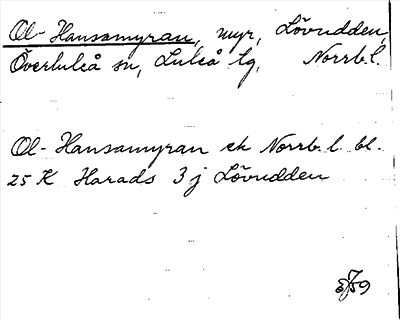 Ol-Hansamyran, myr, Lövudden,
Överluleå sn, Luleå tg, Norrb.l.
Ol-Hansamyran ek Norrb. l. bl.
25 K Harads 3 j Lövudden